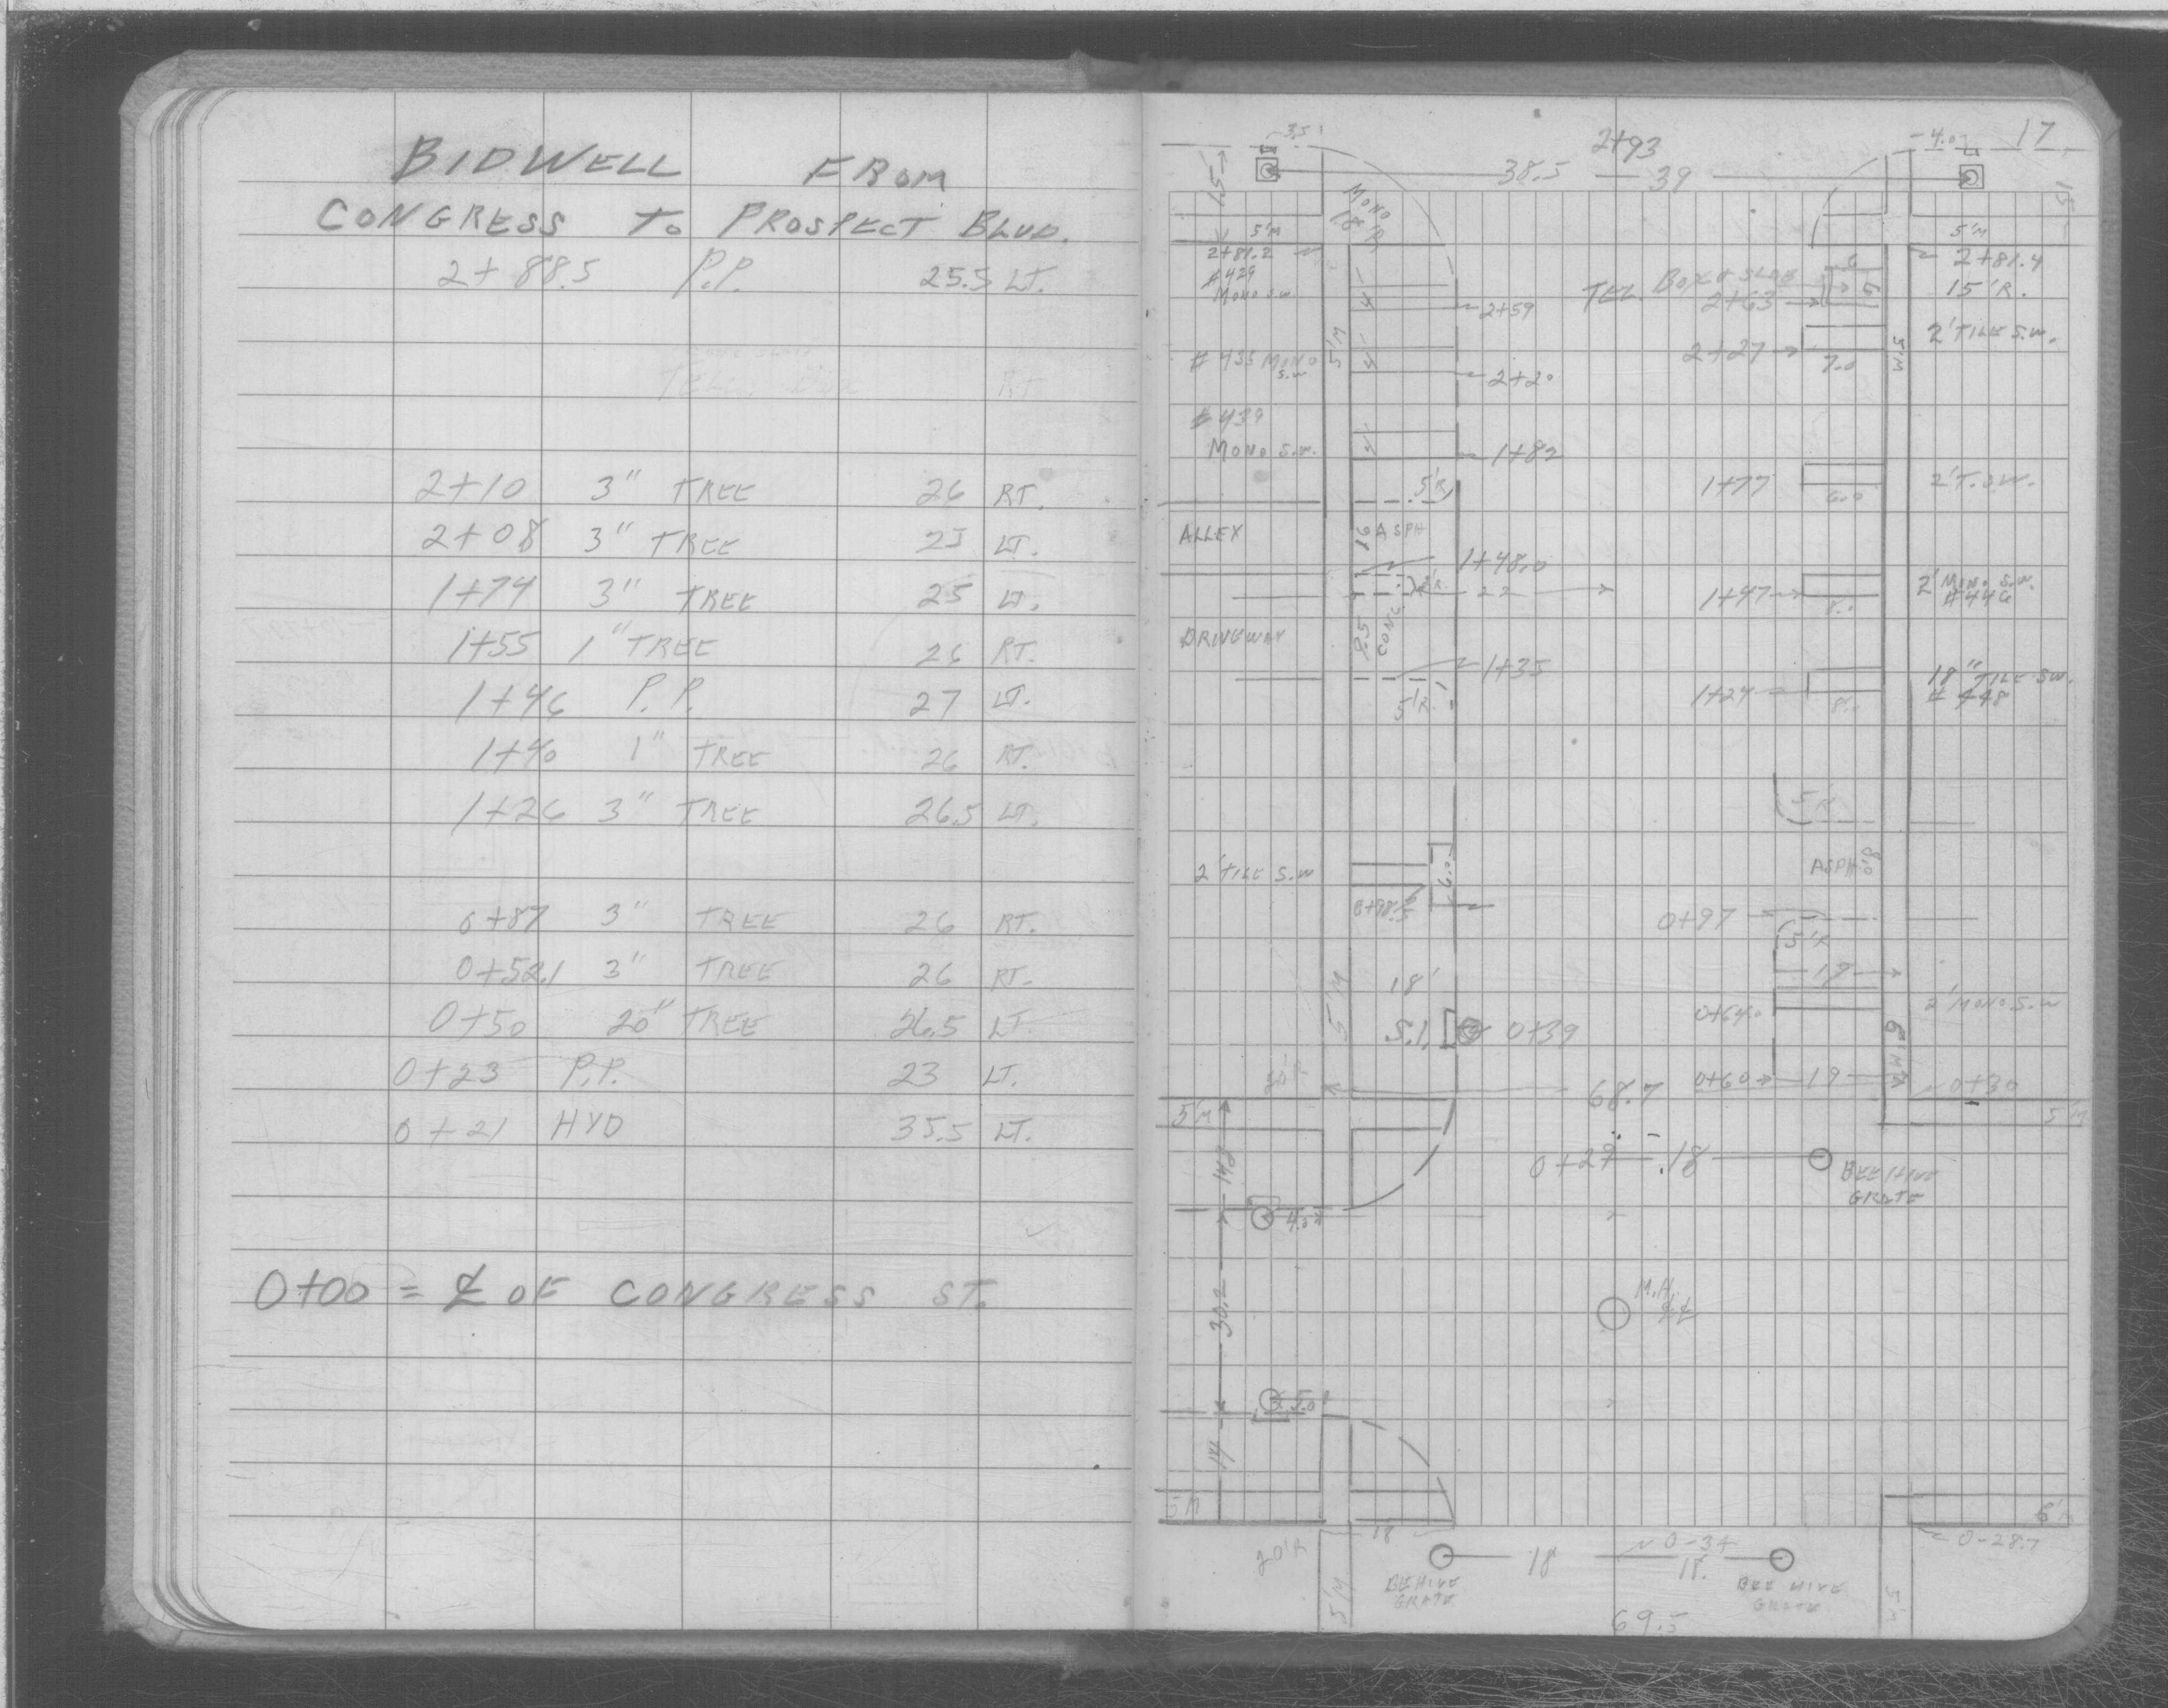 BIDWELL FROM
CONGRESS TO PROSPECT BLVD.
2+88.5 P.P. 25.5 LT.
RT
2+10 3" TREE 26 RT.
2+08 3" TREE 25 LT.
1+74 3" TREE 25 LT.
1+55 1" TREE 26 RT.
1+46 P.P. 27 LT.
1+40 1" TREE 26 RT.
1+26 3" TREE 26.5 LT.
0+87 3" TREE 26 RT.
0+52.1 3" TREE 26 RT.
0+50 20" TREE 26.5 LT.
0+23 P.P. 23 LT.
0+21 HYD 35.5 LT.
0+00 = ℄ OF CONGRESS ST.
17
3.5
2+93
4.0
15
38.5 39
15
MONO
18'R
5'M
5'M
2+81.2
2+81.4
#429
MONO S.W.
15'R.
TEL. BOX & SLAB
2+63
4'
2+59
2' TILE S.W.
5'M
2+27
7.0
5'M
#435 MONO
S.W.
4'
2+20
#439
MONO S.W.
4'
1+82
5'R
1+77
6.0
2' T.S.W.
ALLEY
16 ASPH
1+48.0
22
1+47
8.0
2' MONO S.W.
#446
DRIVEWAY
9.5 CONC.
1+35
5'R.
1+24
8.0
18" TILE S.W.
#448
5'R
2' TILE S.W
6.0
0+98.5
ASPH 8.0
0+97
5'R
19
5'M
18'
S.I. 0+39
0+64.0
2' MONO S.W
20'R
68.7
0+60 19
0+30
5'M
5'M
0+29 18
BEEHIVE
GRATE
14.2
4.0
30.2
M.H.
5.0
14
5'M
6'M
20'R
18
0-28.7
0-34
18
BEHIVE
GRATE
BEE HIVE
GRATE
5'M
5'M
69.5